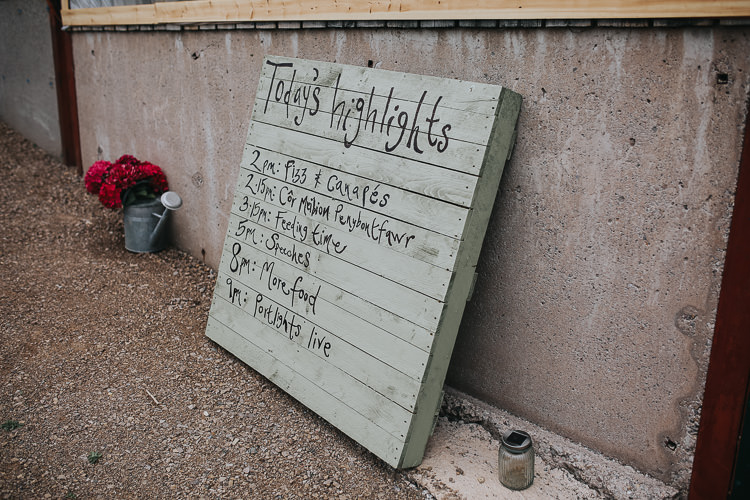 Today's highlights
2pm: Fizz & Canapés
2.15pm: Côr Meibion Penybontfawr
3.15pm: Feeding time
5pm: Speeches
8pm: More food
9pm: Portlights live